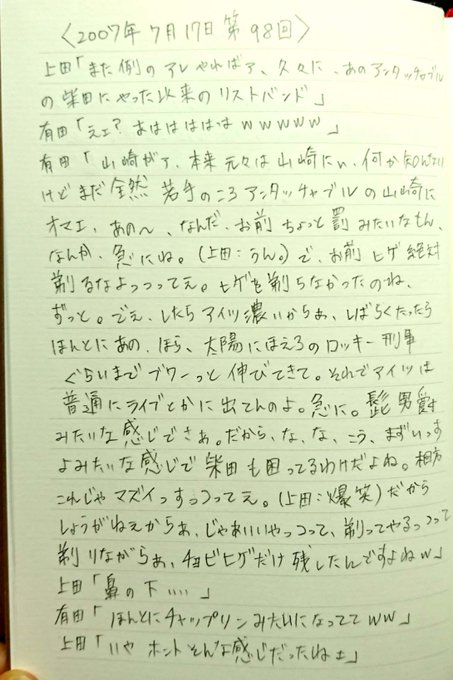 〈2007年7月17日 第98回〉
上田「また例のアレやればァ、久々に、あのアンタッチャブル
の柴田にやった以来のリストバンド」
有田「えェ? あはははははwwwww」
有田「山崎がァ、本来元々は山崎にぃ、何か知んない
けどまだ全然 若手のころアンタッチャブルの山崎に
オマエ、あの〜、なんだ、お前ちょっと罰みたいなもん、
なんか、急にね。(上田:うん。)で、お前 ヒゲ絶対
剃るなよっつってえ。ヒゲを剃らなかったのね、
ずっと。でえ、したらアイツ濃いからぁ、しばらくたったら
ほんとにあの、ほら、太陽にほえろのロッキー刑事
ぐらいまでブワーっと伸びてきて。それでアイツは
普通にライブとかに出てんのよ。急に。髭男爵
みたいな感じでさぁ。だから、な、な、こう、まずいっす
よみたいな感じで柴田も困ってるわけだよね。相方
これじゃマズイっすっつってえ。(上田:爆笑)だから
しょうがねえからぁ、じゃあいいやっつって、剃ってやるっつって
剃りながらぁ、チョビヒゲだけ残したんですよねw」
上田「鼻の下ぃぃ」
有田「ほんとにチャップリンみたいになっててww」
上田「いや ホントそんな感じだったねェ」